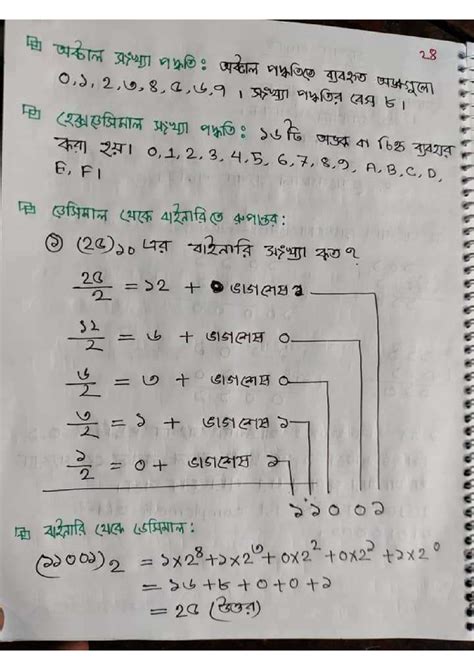 ২৪
অক্টাল সংখ্যা পদ্ধতি: অক্টাল পদ্ধতিতে ব্যবহৃত অঙ্কগুলো
০,১,২,৩,৪,৫,৬,৭ । সংখ্যা পদ্ধতির বেস ৮।
হেক্সাডেসিমাল সংখ্যা পদ্ধতি: ১৬ টি অঙ্ক বা চিহ্ন ব্যবহার
করা হয়। 0,1,2,3,4,5,6,7,8,9, A,B,C,D,
E,F।
ডেসিমাল থেকে বাইনারি তে রুপান্তর:
১ (২৫)১০ এর বাইনারি সংখ্যা কত?
২৫/২ = ১২ + ভাগশেষ ১
১২/২ = ৬ + ভাগশেষ ০
৬/২ = ৩ + ভাগশেষ ০
৩/২ = ১ + ভাগশেষ ১
১/২ = ০ + ভাগশেষ ১
১১০০১
বাইনারি থেকে ডেসিমাল:
(১১০০১)২ = ১×২⁴+১×২³+০×২²+০×২¹+১×২⁰
= ১৬+৮+০+০+১
= ২৫ (উত্তর)